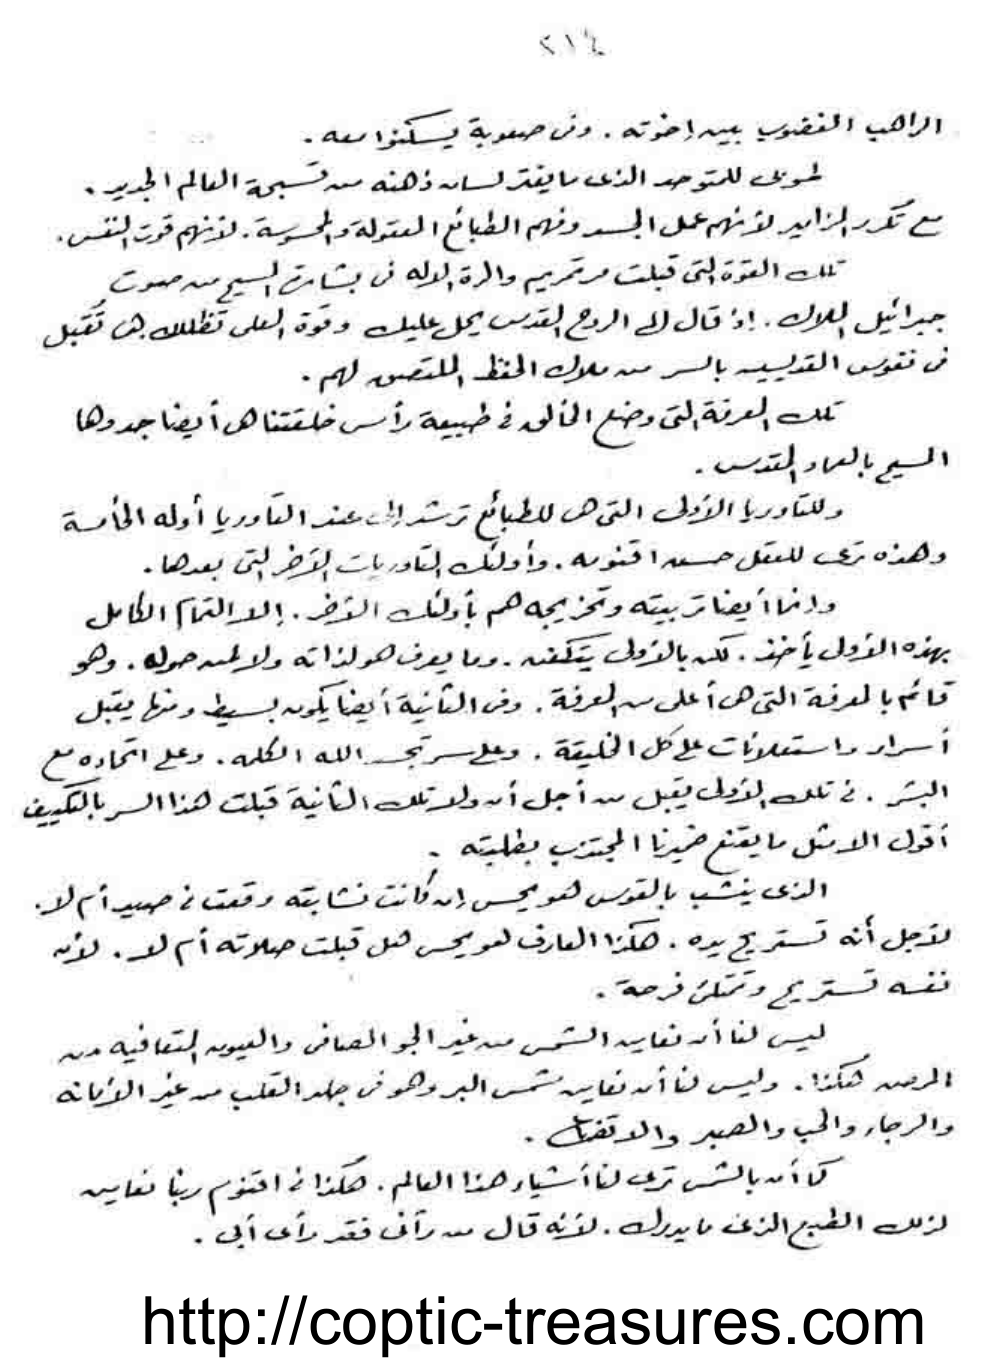 ٢١٤
الراهب الغضوب بين إخوته . وفى صعوبة يسكنوا معه .
طوبى للمتوحد الذى ما يفتر لسان ذهنه من تسبحة العالم الجديد .
مع تكرير المزامير لأنهم عمل الجسد وفهم الطبائع المعقولة والمحسوسة . لأنهم قوت النفس .
تلك القوة التى قبلت مرتمريم والدة الإله فى بشارة المسيح من صوت
جبرائيل الملاك . إذ قال لها الروح القدس يحل عليك وقوة العلى تظللك هى تقبل
فى نفوس القديسين بالسر من ملاك الحفظ الملتصق لهم .
تلك المعرفة التى وضع الخالق فى طبيعة رأس خلقتنا هى أيضا جددها
المسيح بالعماد المقدس .
وللتاوريا الأولى التى هى للطبائع ترشد إلى عند التاوريا أوله الخامسة
وهذه ترى للعقل حسن اقنومه . وأولئك التاوريات الأخر التى بعدها .
وإنما أيضا تربيته وتخريجه هم بأولئك الأخر . إلا التمام الكامل
بهذه الأولى يأخذ . لكن بالأولى يتكفن . وما يعرف هو لذاته ولا لمن حوله . وهو
قائم بالمعرفة التى هى أعلى من المعرفة . وفى الثانية أيضا يكون بسيط ومنها يقبل
أسرار واستعلانات على كل الخليقة . وعلى سر تجسد الله الكلمة . وعلى اتحاده مع
البشر . فى تلك الأولى يقبل من أجل أن ولا تلك الثانية قبلت هذا السر بالتكييف
أقول الا مثل ما يقنع ضميرنا المجتذب بطلبته .
الذى ينشب بالقوس هو يحس إن كانت نشابته وقعت فى صيد أم لا .
لأجل أنه تستريح يده . هكذا العارف هو يحس هل قبلت صلاته أم لا . لأن
نفسه تستريح وتمتلئ فرحة .
ليس لنا أن نعاين الشمس من غير الجو الصافى والعيون المتعافية من
المرض هكذا . وليس لنا أن نعاين شمس البر وهو فى جلد القلب من غير الأمانة
والرجاء والحب والصبر والاتضاع .
كما أن بالشمس ترى لنا أشياء هذا العالم . هكذا فى اقنوم ربنا نعاين
لذلك الطبع الذى ما يدرك . لأنه قال من رآنى فقد رأى أبى .
http://coptic-treasures.com